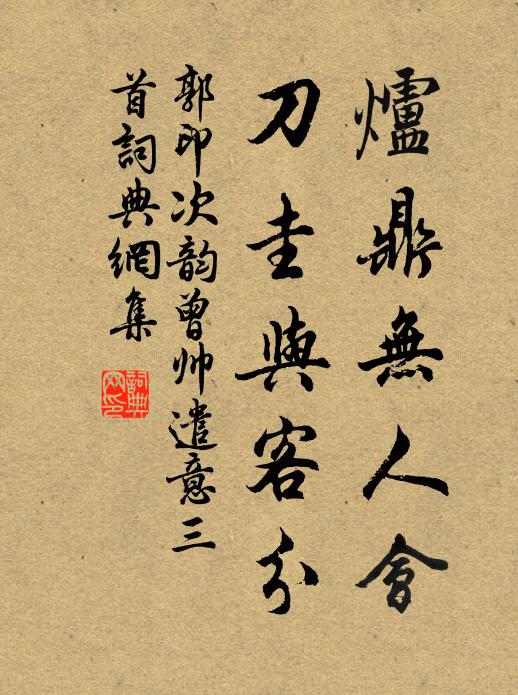 爐鼎無人會
刀圭與客分
郭印次韵曾帅遣意三
首詞典網集
詞典網印